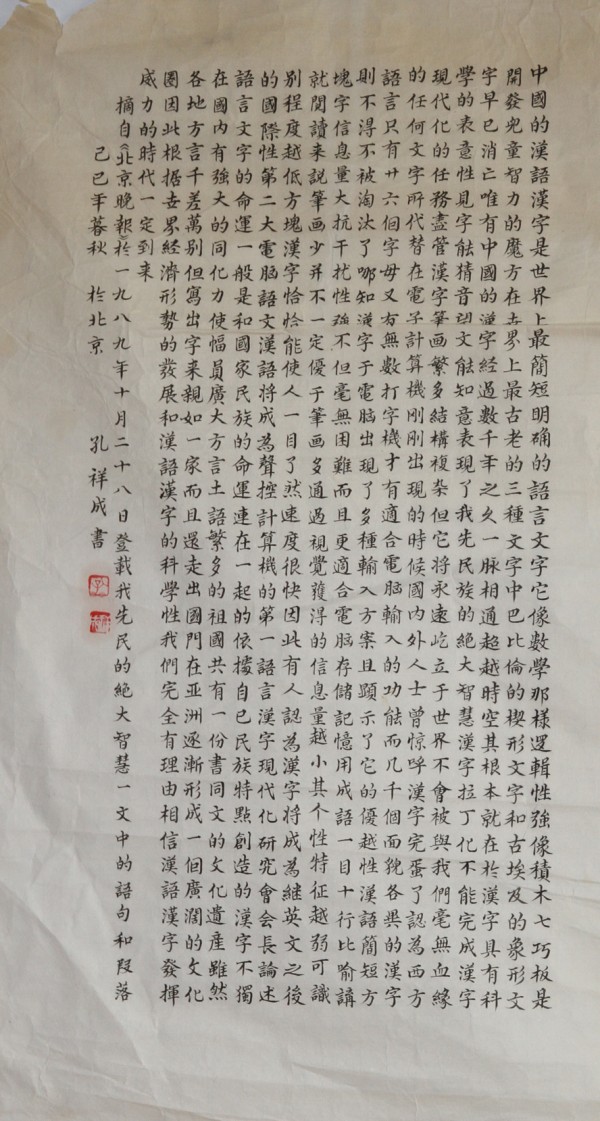 中國的漢語漢字是世界上最簡短明確的語言文字它像數學那樣邏輯性強像積木七巧板是
開發兒童智力的魔方在世界上最古老的三種文字中巴比倫的楔形文字和古埃及的象形文
字早已消亡唯有中國的漢字經過數千年之久一脉相通超越時空其根本就在於漢字具有科
學的表意性見字能猜音望文能知意表現了我先民族的絕大智慧漢字拉丁化不能完成漢字
現代化的任務盡管漢字筆畫繁多結構複杂但它將永遠屹立于世界不會被與我們毫無血緣
的任何文字所代替在電子計算機剛剛出現的時候國内外人士曾惊呼漢字完蛋了認為西方
語言只有廿六個字母又有無數打字機才有適合電脳輸入的功能而几千個面貌各異的漢字
則不得不被淘汰了哪知漢字于電脳出現了多種輸入方案且顕示了它的優越性漢語簡短方
塊字信息量大抗干擾性強不但毫無困難而且更適合電脳存儲記憶用成語一目十行比喻講
就閱讀来説筆画少并不一定優于筆画多通過視覺獲得的信息量越小其个性特征越弱可識
別程度越低方塊漢字恰恰能使人一目了然速度很快因此有人認為漢字將成為継英文之後
的國際性第二大電脳語文漢語將成為聲控計算機的第一語言漢字現代化研究會会長論述
語言文字的命運一般是和國家民族的命運連在一起的依據自己民族特點創造的漢字不獨
在國内有強大的同化力使幅員廣大方言土語繁多的祖國共有一份書同文的文化遺産雖然
各地方言千差萬別但寫出字来親如一家而且還走出國門在亚洲逐漸形成一個廣濶的文化
圈因此根据世界經濟形勢的發展和漢語漢字的科學性我們完全有理由相信漢語漢字發揮
威力的時代一定到来
摘自《北京晚報》於一九八九年十月二十八日登載我先民的絕大智慧一文中的語句和段落
己巳年暮秋 於北京 孔祥成書